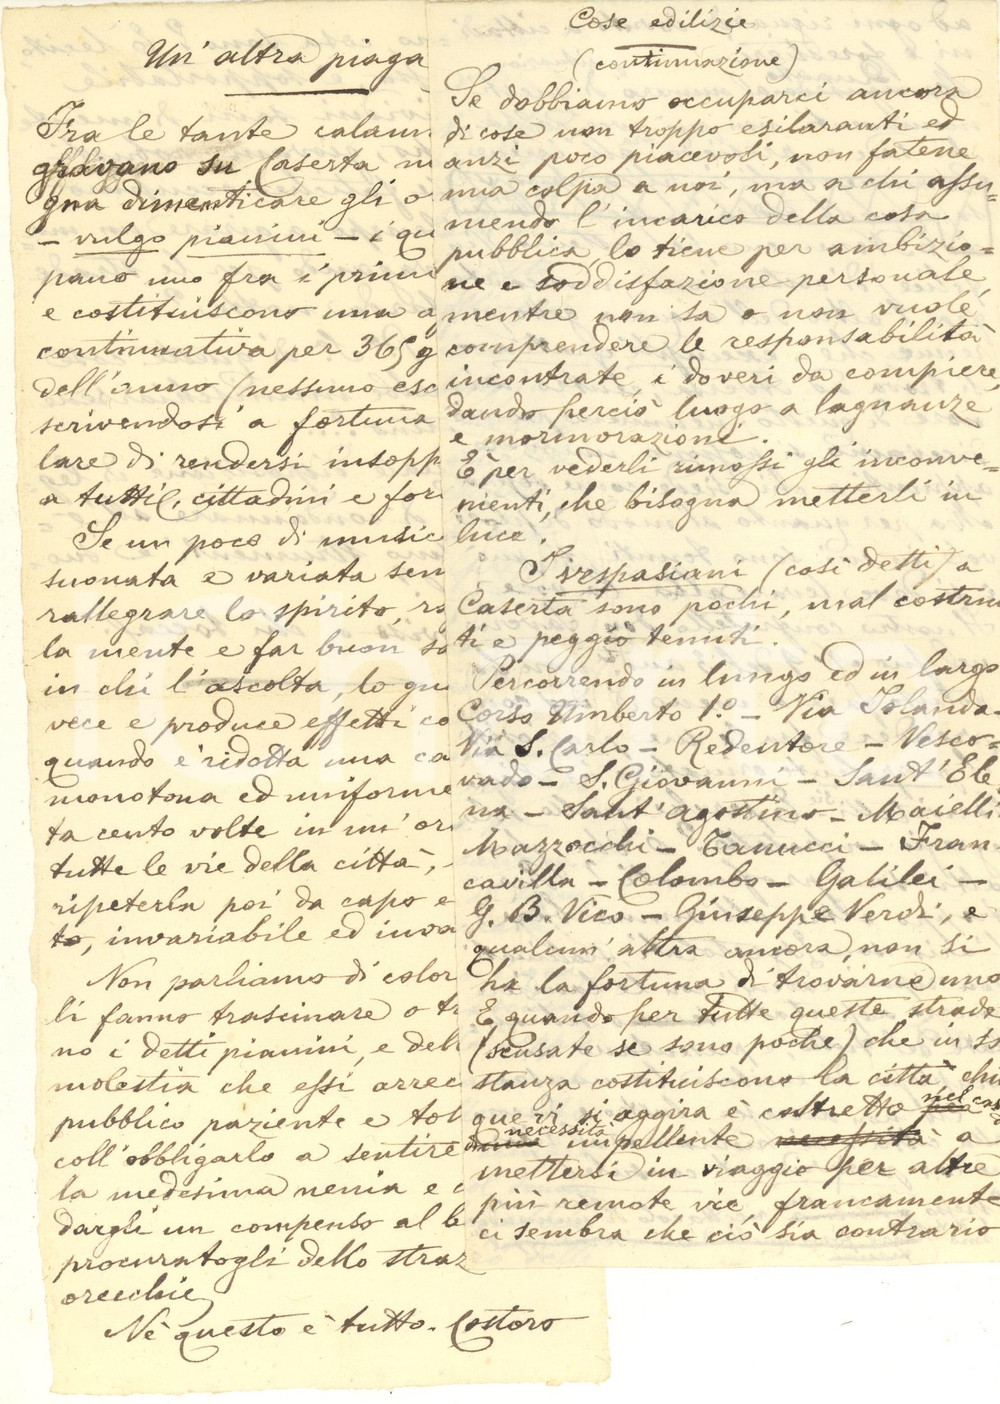 Un' altra piaga
Fra le tante calam
gravano su Caserta n
gna dimenticare gli o
– vulgo pianini – i qu
pano uno fra i primi
e costituiscono una a
continuativa per 365 g
dell'anno (nessuno esc
scrivendosi a fortuna
lare di rendersi insopp
a tutti, cittadini e for
Se un poco di music
suonata e variata sen
rallegrare lo spirito, ra
la mente e far buon sa
in chi l'ascolta, lo qu
vece e produce effetti co
quando è ridotta una ca
monotona ed uniforme
ta cento volte in un' or
tutte le vie della città,
ripeterla poi da capo e
to, invariabile ed inva
Non parliamo di color
li fanno trascinare o tr
no i detti pianini, e dell
molestia che essi arrec
pubblico paziente e tol
coll'obbligarlo a sentire
la medesima nenia e
dargli un compenso al be
procuratogli dello straz
orecchie
Nè questo è tutto. Costoro
Cose edilizie
(continuazione)
Se dobbiamo occuparci ancora
di cose non troppo esilaranti ed
anzi poco piacevoli, non fatene
una colpa a noi, ma a chi assu=
mendo l'incarico della cosa
pubblica, lo tiene per ambizio=
ne e soddisfazione personale,
mentre non sa o non vuole
comprendere le responsabilità
incontrate, i doveri da compiere,
dando perciò luogo a lagnanze
e mormorazioni.
È per vederli rimossi gli inconve=
nienti, che bisogna metterli in
luce.
I vespasiani (così detti) a
Caserta sono pochi, mal costrui
ti e peggio tenuti.
Percorrendo in lungo ed in largo
Corso Umberto 1.º – Via Iolanda –
Via S. Carlo – Redentore – Vesco=
vado – S. Giovanni – Sant' Ele
na – Sant' Agostino – Maielli
Mazzocchi – Tanucci – Fran
cavilla – Colombo – Galilei –
G. B. Vico – Giuseppe Verdi, e
qualcun' altra ancora, non si
ha la fortuna di trovarne uno
E quando per tutte queste strade
(scusate se sono poche) che in so
stanza costituiscono la città, chiu
que vi si aggira è costretto nel cas
necessità impellente necessità a
mettersi in viaggio per altre
più remote vie, francamente
ci sembra che ciò sia contrario